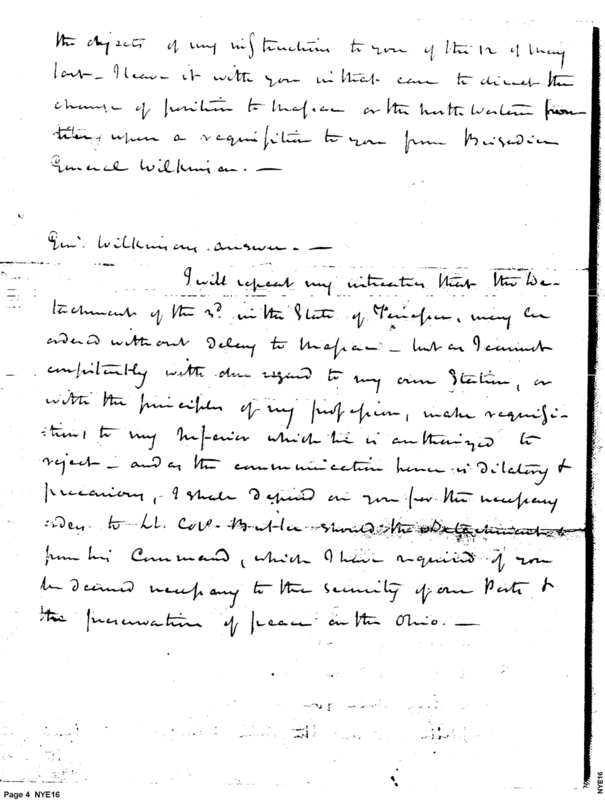 the objects of my instructions to you of the 12 of May
last – I leave it with you in that case to direct the
change of position to Massac or the North Western fron-
tier, upon a requisition to you from Brigadier
General Wilkinson. —
Genl. Wilkinsons answer. —
I will repeat my intreaties that the De-
tachment of the 3d. in the State of Tenessee, may be
ordered without Delay to Massac – but as I cannot
consistently with due regard to my own Station, or
with the principles of my profession, make requisi-
tions to my Inferior which he is authorized to
reject – and as the communication hence is Dilatory &
precarious, I shall Depend on you for the necessary
orders to Lt. Col. Butler should the Detachment
from his Command, which I have required of you
be deemed necessary to the security of our Posts &
the preservation of peace on the Ohio. —
Page 4 NYE16
NYE16